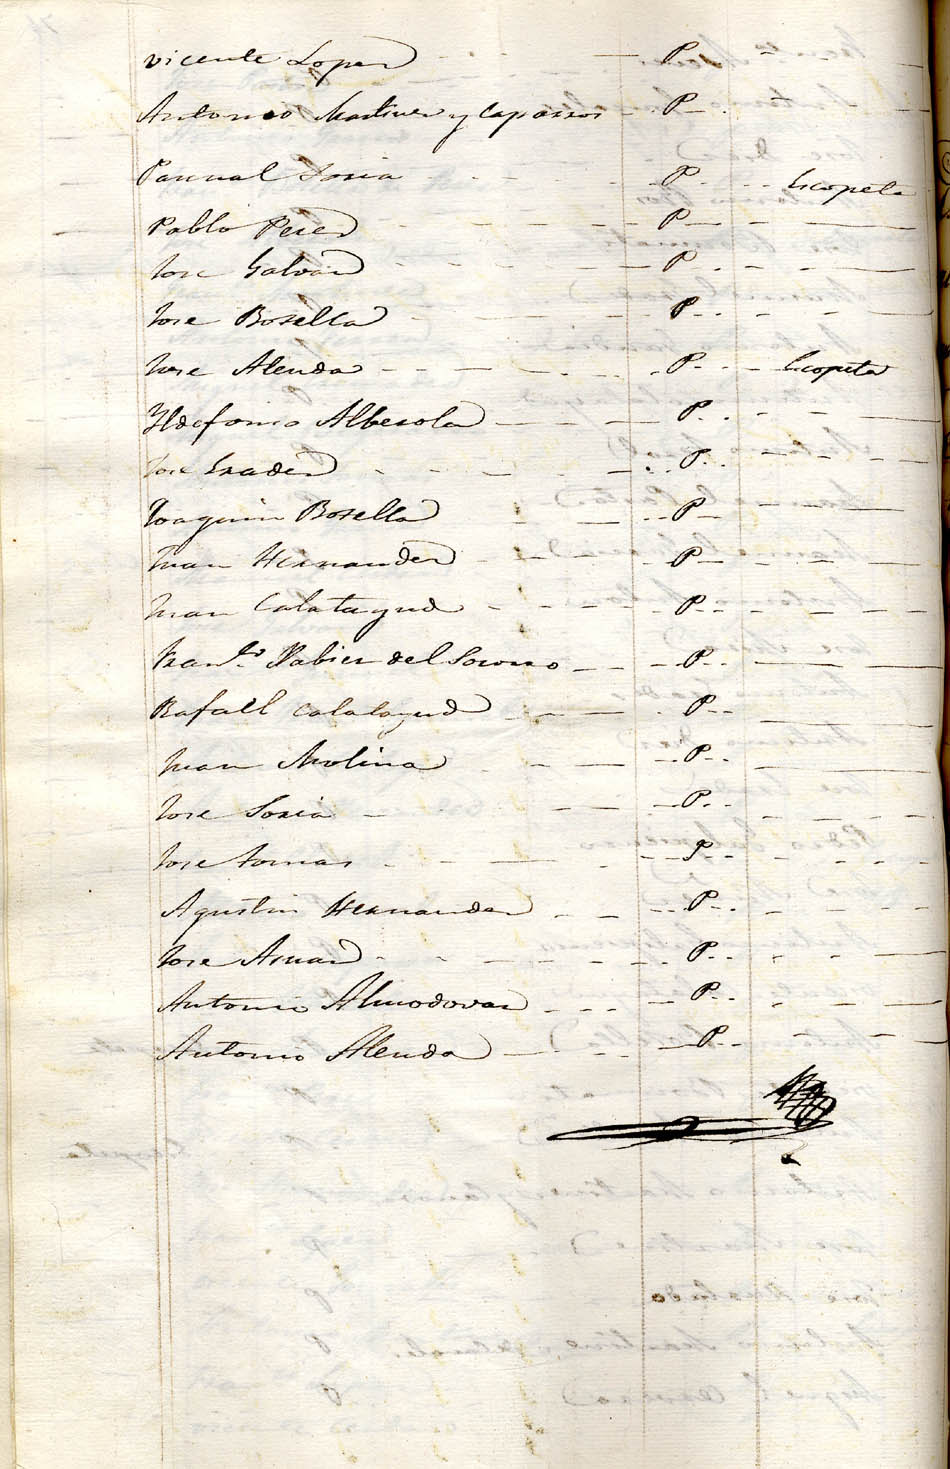 Vicente Lopez P
Antonio Martinez y Caparros P
Pasqual Soria P Escopeta
Pablo Perez P
Jose Galvañ P
Jose Botella P
Jose Alenda P Escopeta
Yldefonso Alberola P
Jose P
Joaquin Botella P
Juan Hernandez P
Juan Calatayud P
Franco. Xabier del Socorro P
Rafaél Calatayud P
Juan Molina P
Jose Soria P
Jose Tomas P
Agustin Hernandez P
Jose Aznar P
Antonio Almodovar P
Antonio Alenda P